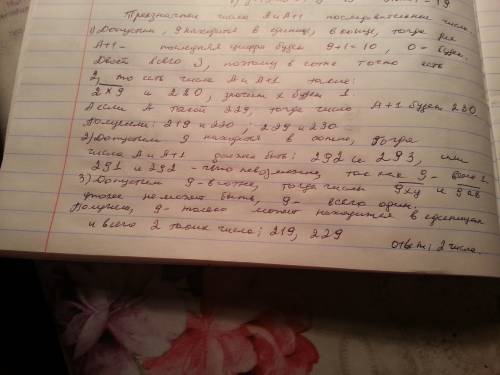 Трехзначные числа A и A+1 последовательные числа.
1) Допустим, 9 находится в единице, в конце, тогда для
A+1 - последняя цифра будет 9+1=10, 0 - будет.
Двоек всего 3, поэтому в сотне точно есть
2, то есть числа A и A+1 такие:
2x9 и 220, значит x будет 1.
А если A такой 229, тогда число A+1 будет 230
Получили: 219 и 220; 229 и 230
2) Допустим 9 находится в , тогда
числа A и A+1 должны быть: 292 и 293, или
291 и 292 - что невозможно, так как 9 -
3) Допустим 9 - в сотне, тогда числа 9xy и 9ab
тоже не может быть, 9 - всего один.
Получили, 9 - только может находится в единицах
и всего 2 таких числа: 219, 229
Ответ: 2 числа.